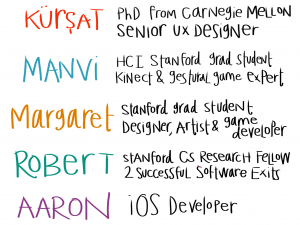 KÜRŞAT PhD from Carnegie Mellon
Senior UX Designer
MANVI HCI Stanford grad student
Kinect & gestural game expert
Margaret Stanford grad student
Designer, Artist & game developer
ROBERT Stanford CS Research Fellow
2 Successful Software Exits
AARON iOS Developer